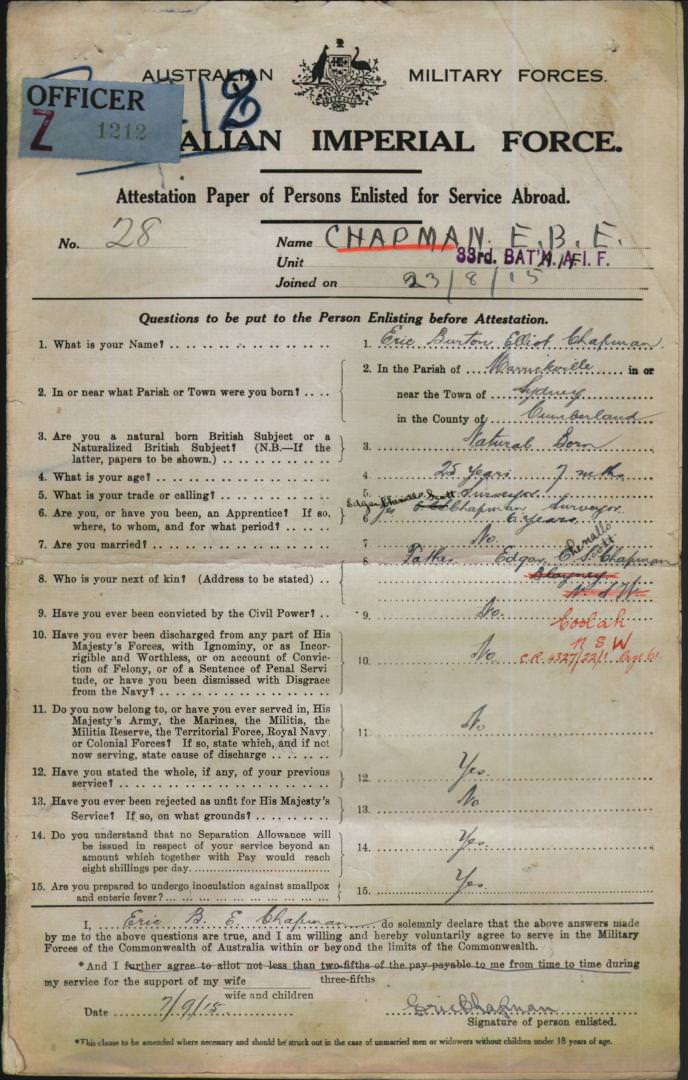 AUSTRALIAN MILITARY FORCES.
OFFICER
Z 1212
ALIAN IMPERIAL FORCE.
Attestation Paper of Persons Enlisted for Service Abroad.
No. 28
Name CHAPMAN. E.B.E.
Unit 33rd. BAT'N. A.I.F.
Joined on 23/8/15
Questions to be put to the Person Enlisting before Attestation.
1. What is your Name? 1. Eric Burton Elliot Chapman
2. In or near what Parish or Town were you born? 2. In the Parish of Marrickville in or
near the Town of Sydney
in the County of Cumberland
3. Are you a natural born British Subject or a
Naturalized British Subject? (N.B.—If the
latter, papers to be shown.) 3. Natural Born
4. What is your age? 4. 25 years 7 mths
5. What is your trade or calling? 5. Surveyor
6. Are you, or have you been, an Apprentice? If so,
where, to whom, and for what period? 6. Yes Edgar Scott Chapman Surveyor
6 years
7. Are you married? 7. No.
8. Who is your next of kin? (Address to be stated) 8. Father Edgar Scott Chapman
Blayney
N.S.W.
Coolah
N S W
9. Have you ever been convicted by the Civil Power? 9. No.
10. Have you ever been discharged from any part of His
Majesty's Forces, with Ignominy, or as Incor-
rigible and Worthless, or on account of Convic-
tion of Felony, or of a Sentence of Penal Servi
tude, or have you been dismissed with Disgrace
from the Navy? 10. No
11. Do you now belong to, or have you ever served in, His
Majesty's Army, the Marines, the Militia, the
Militia Reserve, the Territorial Force, Royal Navy
or Colonial Forces? If so, state which, and if not
now serving, state cause of discharge 11 No
12. Have you stated the whole, if any, of your previous
service? 12. Yes.
13. Have you ever been rejected as unfit for His Majesty's
Service? If so, on what grounds? 13. No
14. Do you understand that no Separation Allowance will
be issued in respect of your service beyond an
amount which together with Pay would reach
eight shillings per day. 14. Yes.
15. Are you prepared to undergo inoculation against smallpox
and enteric fever? 15. Yes.
I, Eric B. E. Chapman do solemnly declare that the above answers made
by me to the above questions are true, and I am willing and hereby voluntarily agree to serve in the Military
Forces of the Commonwealth of Australia within or beyond the limits of the Commonwealth.
*And I further agree to allot not less than two-fifths of the pay payable to me from time to time during
three-fifths
my service for the support of my wife
wife and children
Date 7/9/15
Eric Chapman
Signature of person enlisted.
*This clause to be amended where necessary and should be struck out in the case of unmarried men or widowers without children under 18 years of age.